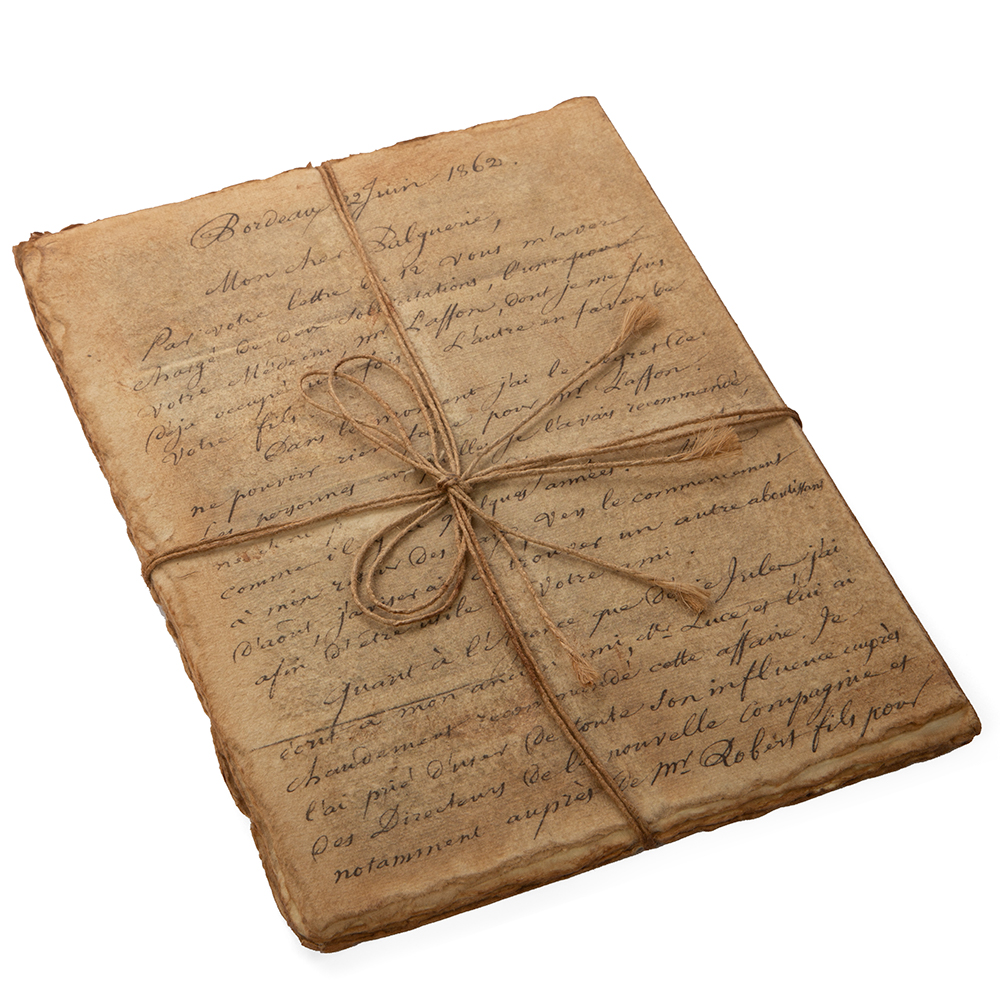 Bordeaux 22 Juin 1862.
Mon cher Dalguerie,
Par votre lettre du 12 vous m'avez
chargé de deux sollicitations, l'une pour
votre Médecin mr Laffon, dont je me suis
déjà occupé une fois L'autre en faveur de
votre fils.
Dans le moment j'ai le regret de
ne pouvoir rien faire pour mr Laffon.
Les personnes auxquelles je l'avais recommandé,
comme il y a quelques années.
à mon retour des eaux vers le commencement
d'août, j'aviserai à trouver un autre aboutissant
afin d'être utile à votre ami.
Quant à l'affaire que désire Jules j'ai
écrit à mon ancien ami, mr Luce et lui ai
chaudement recommandé cette affaire. Je
l'ai prié d'user de toute son influence auprès
des Directeurs de la nouvelle Compagnie et
notamment auprès de mr Robert fils pour